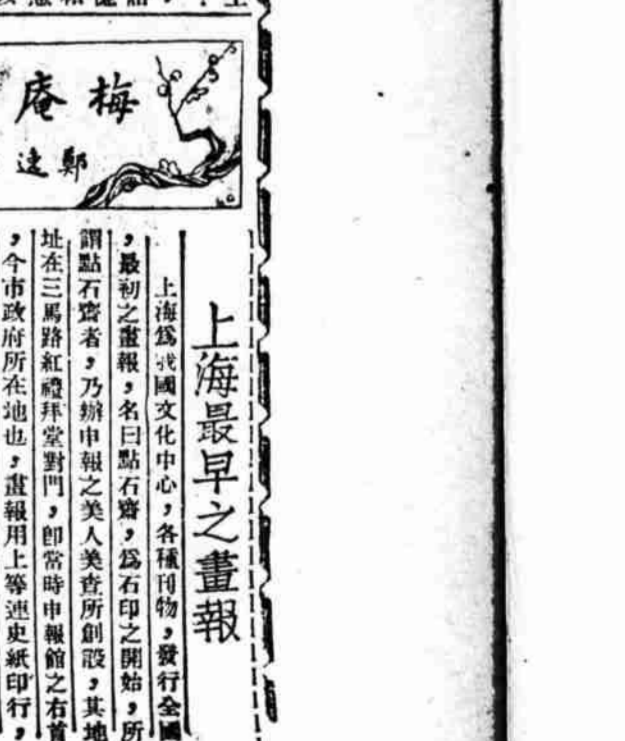 梅庵
鄭逸
上海最早之畫報
上海爲我國文化中心，各種刊物，發行全國
，最初之畫報，名曰點石齋，爲石印之開始，所
謂點石齋者，乃辦申報之美人美查所創設，其地
址在三馬路紅禮拜堂對門，卽當時申報館之右首
，今市政府所在地也，畫報用上等連史紙印行，